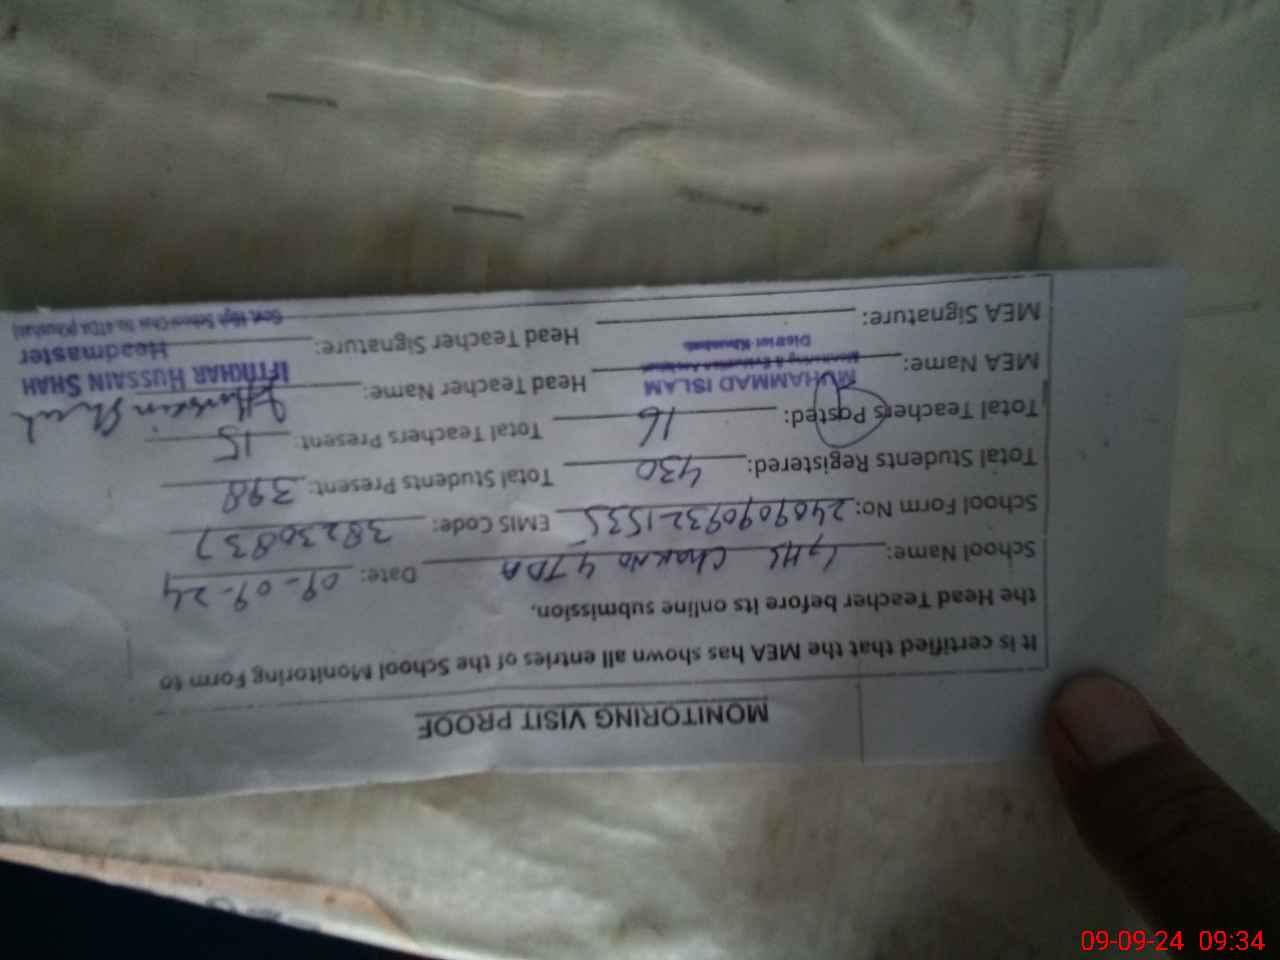 MONITORING VISIT PROOF
It is certified that the MEA has shown all entries of the School Monitoring Form to
the Head Teacher before its online submission.
School Name: GHS Chak No 4 TDA Date: 09-09-24
School Form No: 24090909321535 EMIS Code: 38230837
Total Students Registered: 430 Total Students Present: 398
Total Teachers Posted: 16 Total Teachers Present: 15
MEA Name: MUHAMMAD ISLAM Head Teacher Name: IFTIKHAR HUSSAIN SHAH
Monitoring & Evaluation Assistant Headmaster
District Khushab
MEA Signature: Head Teacher Signature: Govt. High School Chak No.4TDA (Khushab)
09-09-24 09:34